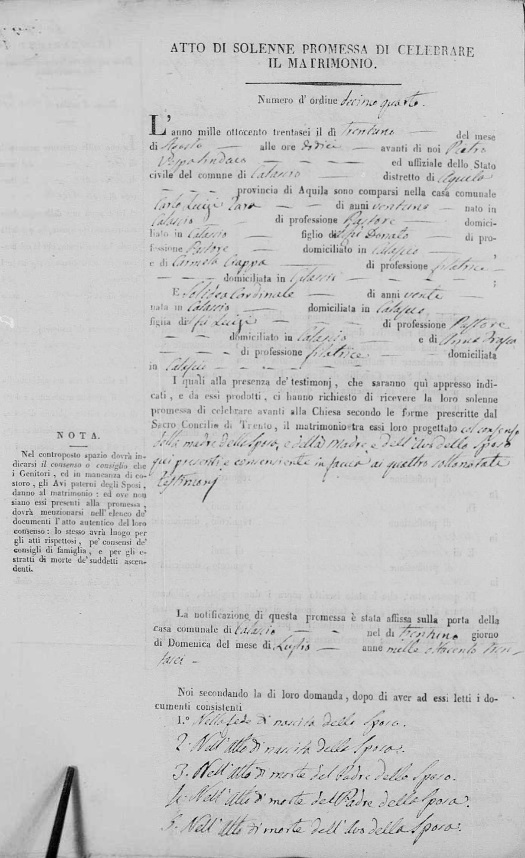 ATTO DI SOLENNE PROMESSA DI CELEBRARE
IL MATRIMONIO.
Numero d'ordine decimo quarto.
L'anno mille ottocento trentasei il dì trentuno del mese
di Agosto alle ore avanti di noi Pietro
Sindaco ed uffiziale dello Stato
civile del comune di Calascio distretto di Aquila
provincia di Aquila sono comparsi nella casa comunale
Carlo Luigi di anni ventuno nato in
Calascio di professione Pastore domici-
liato in Calascio figlio di Donato di pro-
fessione Pastore domiciliato in Calascio ;
e di Carmela di professione filatrice
domiciliata in Calascio ;
E Cardinale di anni venti
nata in Calascio domiciliata in Calascio
figlia di Luigi di professione Pastore
domiciliato in Calascio e di Anna
di professione filatrice domiciliata
in Calascio
I quali alla presenza de' testimonj, che saranno quì appresso indi-
cati, e da essi prodotti, ci hanno richiesto di ricevere la loro solenne
promessa di celebrare avanti alla Chiesa secondo le forme prescritte dal
Sacro Concilio di Trento, il matrimonio tra essi loro progettato col consenso
della madre dello Sposo, e della Madre e dell'Avo dello Sposa
qui presenti, e consenzienti in faccia ai quattro sottonotati
testimonj
NOTA.
Nel controposto spazio dovrà in-
dicarsi il consenso o consiglio che
i Genitori, ed in mancanza di co-
storo, gli Avi paterni degli Sposi,
danno al matrimonio: ed ove non
siano essi presenti alla promessa,
dovrà menzionarsi nell'elenco de'
documenti l'atto autentico del loro
consenso: lo stesso avrà luogo per
gli atti rispettosi, pe' consensi de'
consigli di famiglia, e per gli e-
stratti di morte de' suddetti ascen-
denti.
La notificazione di questa promessa è stata affissa sulla porta della
casa comunale di Calascio nel dì trentuno giorno
di Domenica del mese di Luglio anno mille ottocento tren-
tasei
Noi secondando la di loro domanda, dopo di aver ad essi letti i do-
cumenti consistenti
1.° Nella fede di nascita dello Sposo.
2. Nell'Atto di nascita della Sposa.
3. Nell'Atto di morte del Padre dello Sposo.
4. Nell'Atto di morte del Padre della Sposa.
5. Nell'Atto di morte dell'Avo dello Sposo.